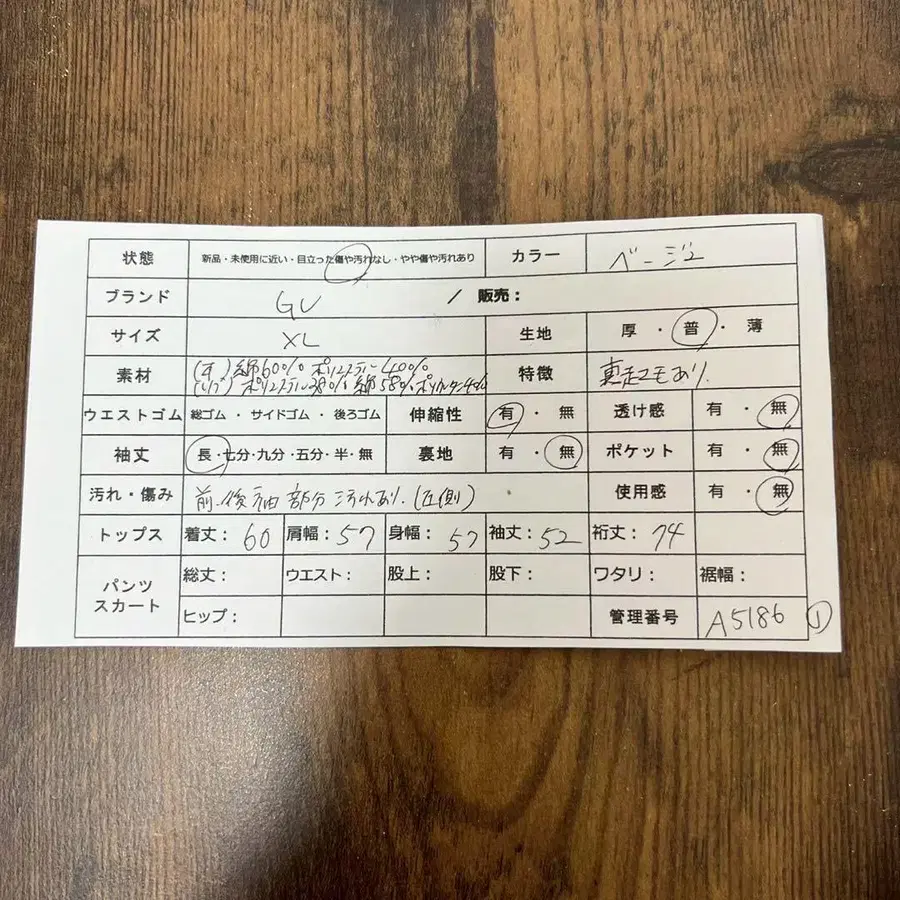 状態 新品・未使用に近い・目立った傷や汚れなし・やや傷や汚れあり カラー ベージュ
ブランド GU / 販売：
サイズ XL 生地 厚・普・薄
素材 (本)綿60% ポリエステル40% 特徴 裏起毛あり.
(リブ)ポリエステル38% 綿58% ポリウレタン4%
ウエストゴム 総ゴム・サイドゴム・後ろゴム 伸縮性 有・無 透け感 有・無
袖丈 長・七分・九分・五分・半・無 裏地 有・無 ポケット 有・無
汚れ・傷み 前.後 袖部分 汚れあり.(左側) 使用感 有・無
トップス 着丈：60 肩幅：57 身幅：57 袖丈：52 裄丈：74
パンツ スカート 総丈： ウエスト： 股上： 股下： ワタリ： 裾幅：
ヒップ： 管理番号 A5186 ①